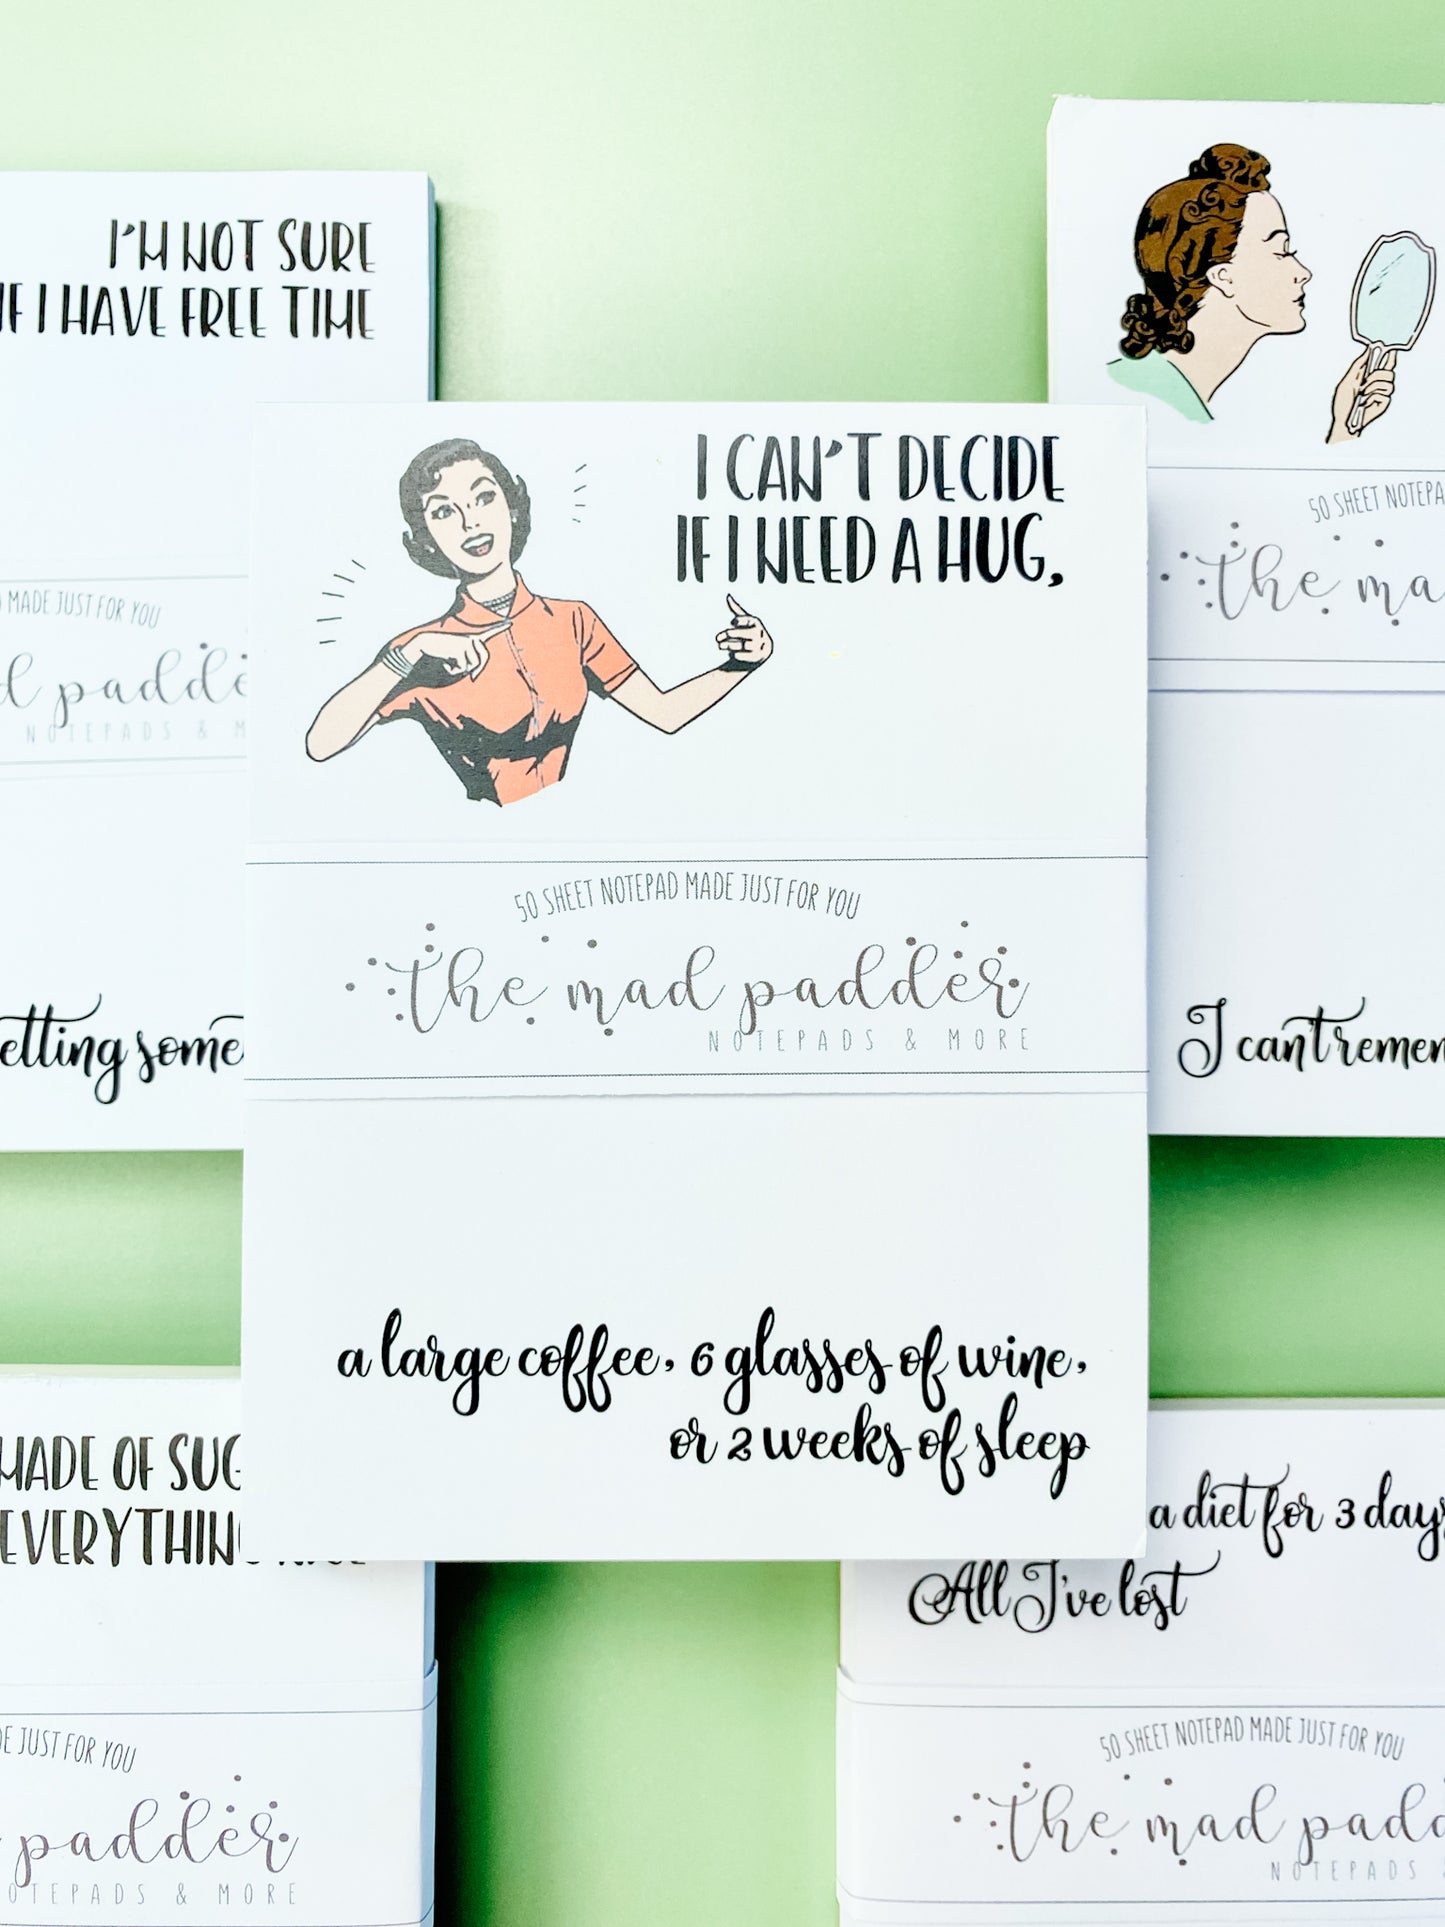 I'M NOT SURE
IF I HAVE FREE TIME
MADE JUST FOR YOU
padde
NOTEPADS & M
etting some
I CAN'T DECIDE
IF I NEED A HUG,
50 SHEET NOTEPAD MADE JUST FOR YOU
the mad padder
NOTEPADS & MORE
a large coffee, 6 glasses of wine,
or 2 weeks of sleep
50 SHEET NOTEPA
the ma
I can't remem
MADE OF SUG
EVERYTHIN
JUST FOR YOU
padder
OTEPADS & MORE
a diet for 3 days
All I've lost
50 SHEET NOTEPAD MADE JUST FOR YOU
the mad padd
NOTEPADS